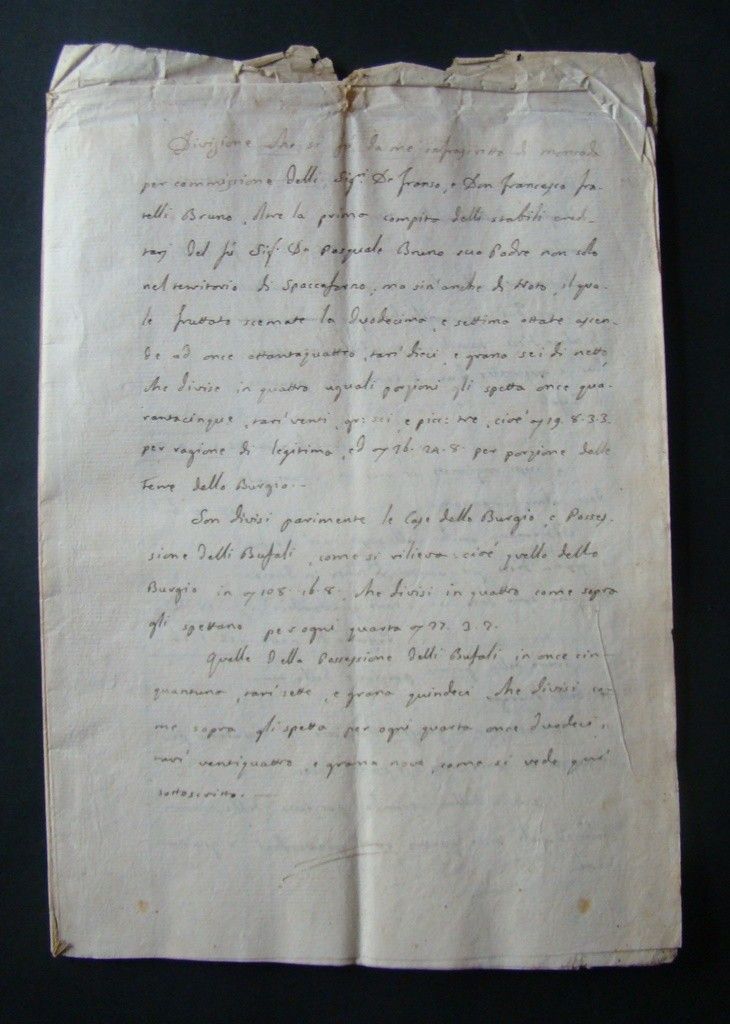 Divizione che si fà da me infrascritto di Moncada
per commissione delli Sig.ri Dn Franso, e Don Francesco fra-
telli Bruno, oltre la prima compita delli stabili eredi-
tarj del fù Sig.r Dn Pasquale Bruno suo Padre non solo
nel territorio di Spaccaforno, ma sin'anche di Noto, il qua-
le fruttato scemate la duodecima, e settima ottate ascen-
de ad once ottantaquattro, tarì dieci, e grana sei di netto
che divise in quattro uguali porzioni gli spetta once qua-
rantacinque, tarì venti, gr: sei, e picc: tre, cioè 19. 8. 3. 3.
per ragione di legitima, ed 26. 24. 8. per porzione delle
Terre dello Burgio.
Son divisi parimente le Case dello Burgio, e Posses-
sione delli Bufali, come si rileva: cioè quello dello
Burgio in 108. 16. 8. che divisi in quattro come sopra
gli spettano per ogni quarta 27. 3. 2.
Quelle della Possessione delli Bufali in once cin-
quantuna, tarì sette, e grana quindeci che divisi co-
me sopra gli spetta per ogni quarta once duodeci,
tarì ventiquattro, e grana nove, come si vede quì
sottoscritto.